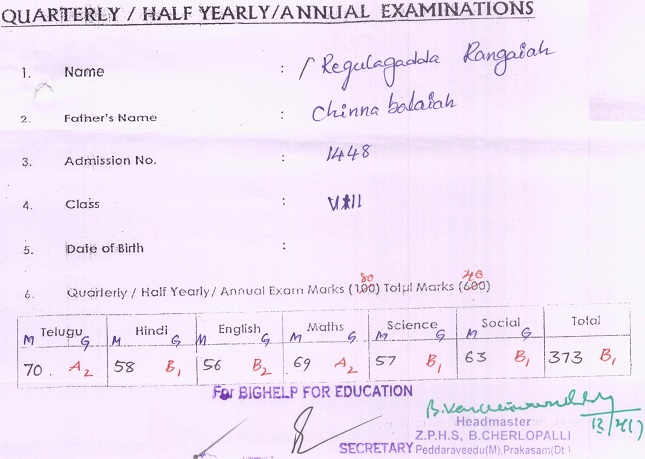 QUARTERLY / HALF YEARLY/ANNUAL EXAMINATIONS
1. Name : Regulagadda Rangaiah
2. Father's Name : Chinna balaiah
3. Admission No. : 1448
4. Class : VIII
5. Date of Birth :
80 48
6. Quarterly / Half Yearly/ Annual Exam Marks (100) Total Marks (600)
Telugu Hindi English Maths Science Social Total
M G M G M G M G M G M G
70. A2 58 B1 56 B2 69 A2 57 B1 63 B1 373 B1
For BIGHELP FOR EDUCATION
Headmaster
Z.P.H.S, B.CHERLOPALLI
SECRETARY Peddaraveedu(M), Prakasam(Dt.)